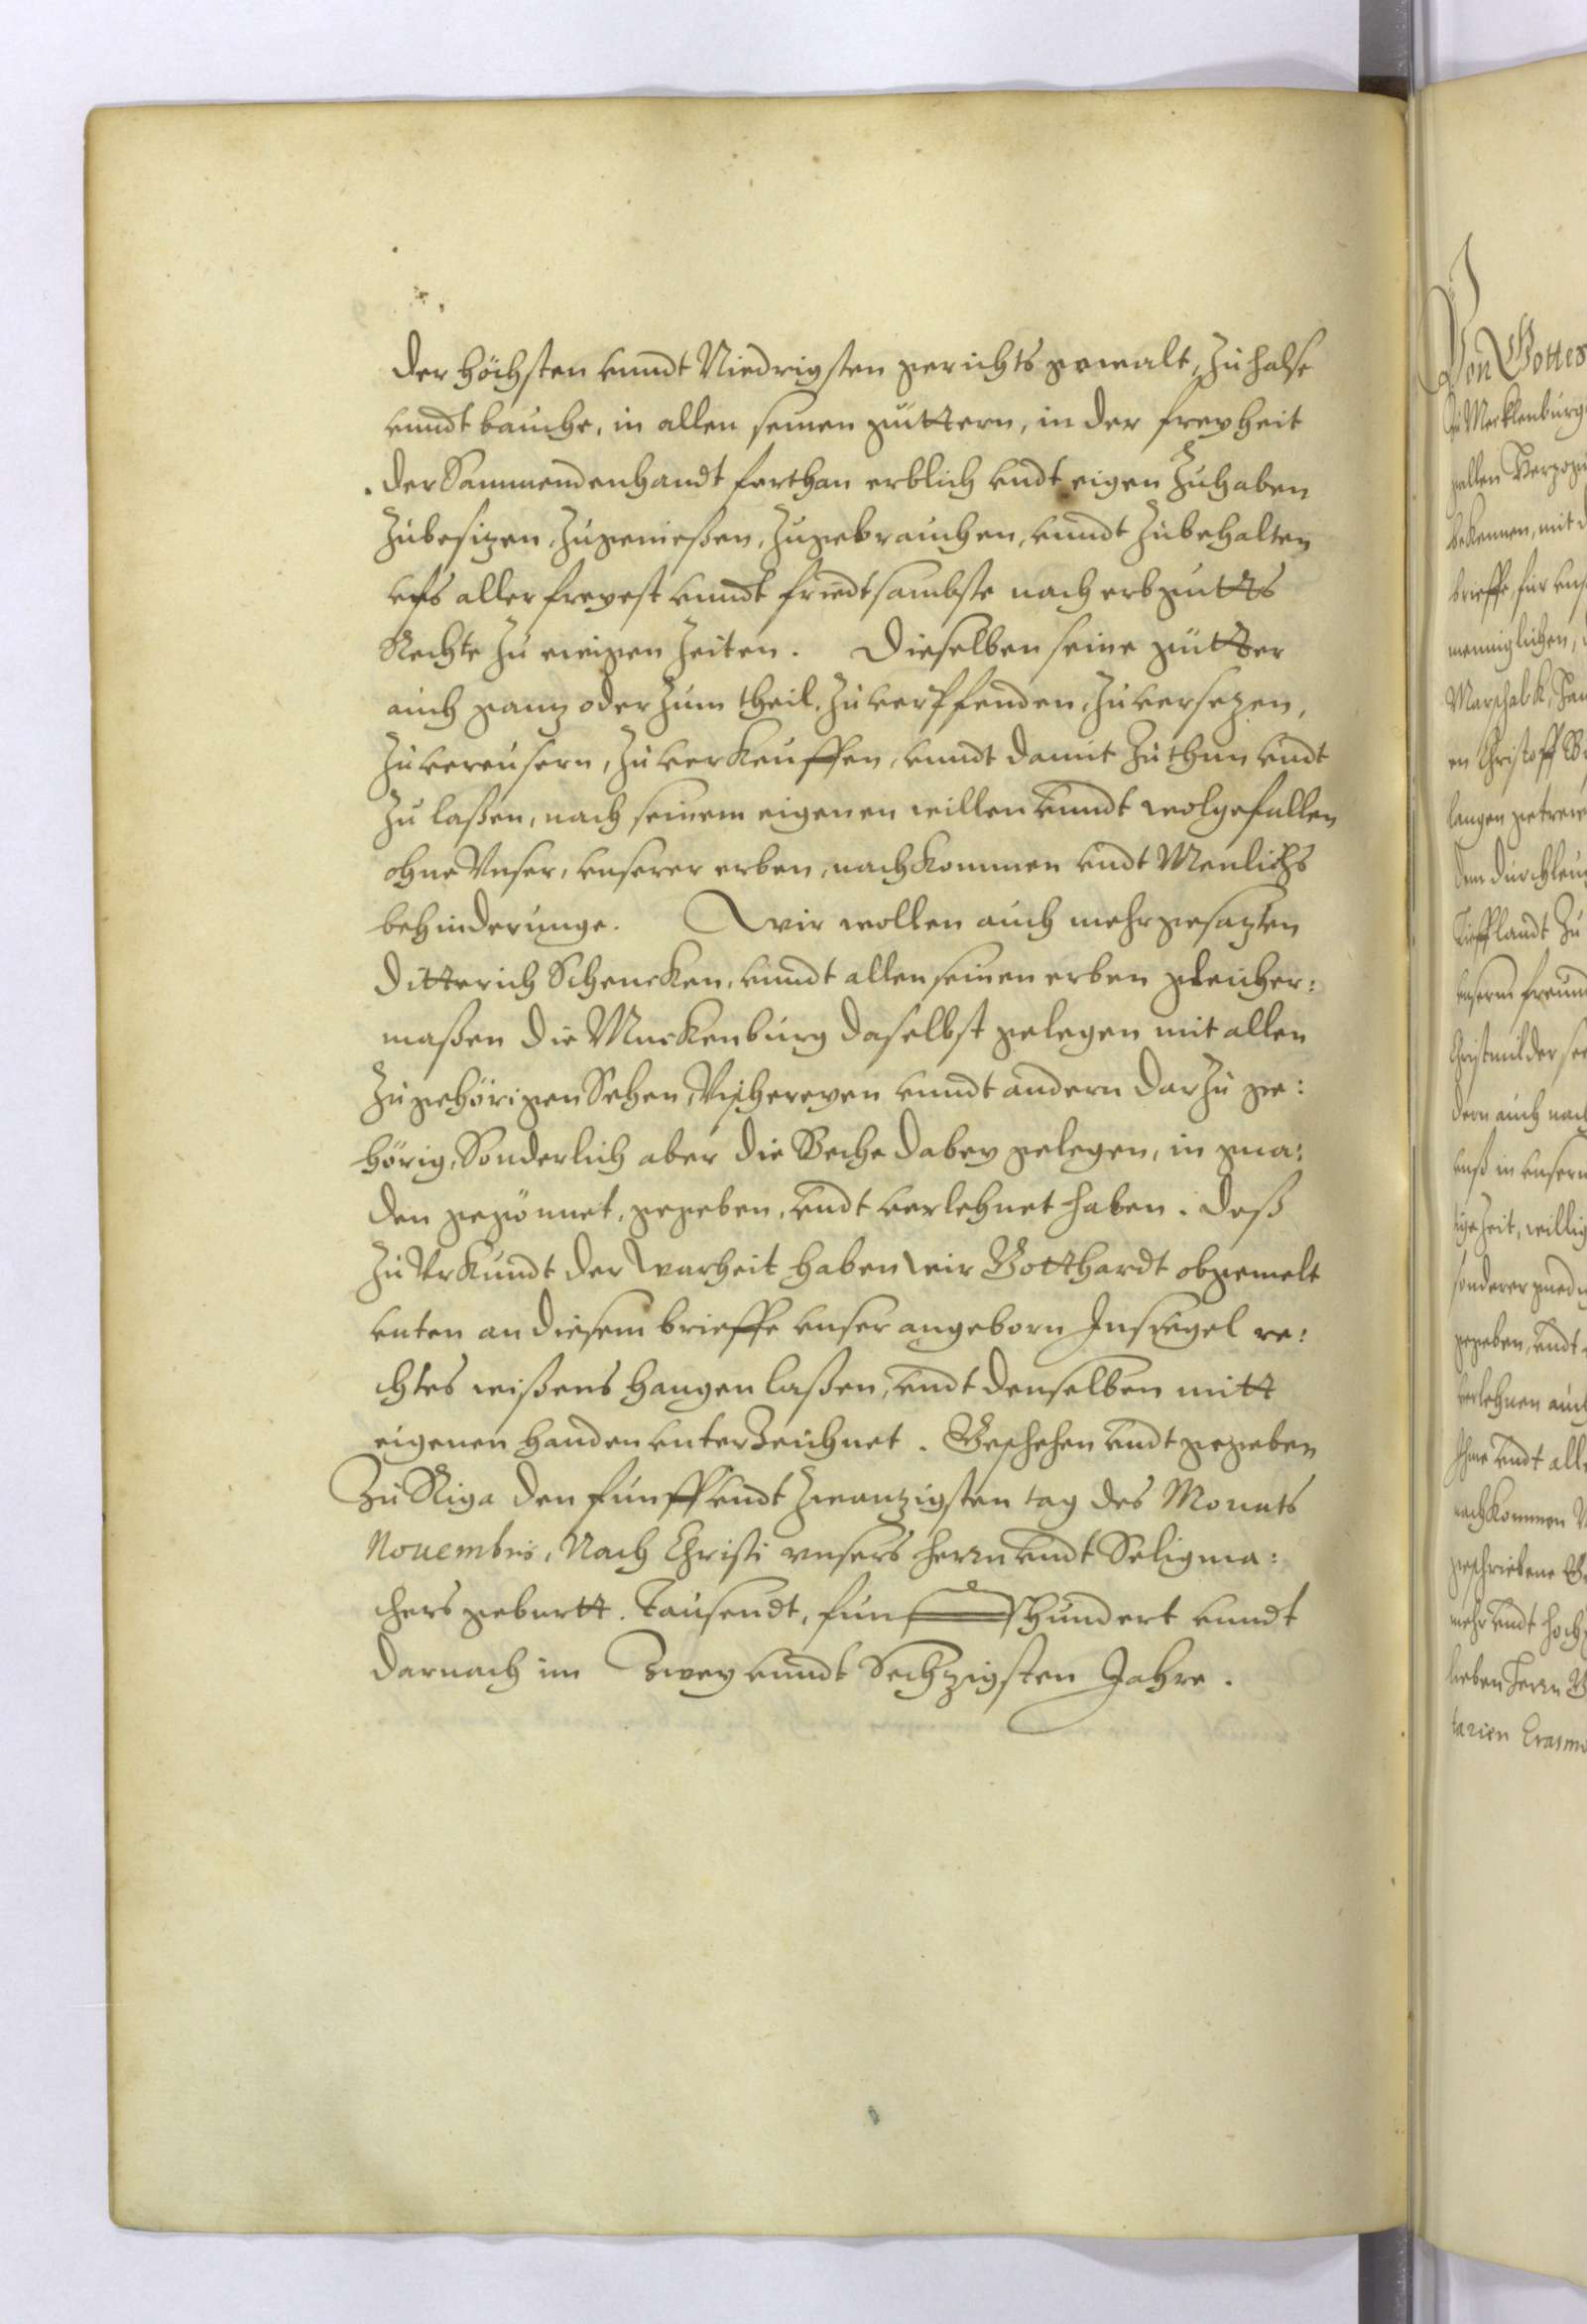 der höchsten vnndt Niedrigsten gerichts gewalt, zu halse
vnndt bauche, in allen seinen güttern, in der freyheit
der Sammendenhandt forthan erblich vndt eigen zuhaben
zubesizen, zugenießen, zugebrauchen, vnndt zubehalten
vfs aller freyest vnndt friedtsambste nach erbgutts
Rechte zu ewigen zeiten. Dieselben seine gütter
auch ganz oder zum theil, zu verpfenden, zu versezen,
zu vereusern, zu verkeuffen, vnndt damit zu thun vndt
zu laßen, nach seinem eigenen willen vnndt wolgefallen
ohne Vnser, vnserer erben, nachkommen vndt Menlichs
behinderunge. Wir wollen auch mehrgesagten
Ditterich Schencken, vnndt allen seinen erben gleicher:
maßen die Muckenburg daselbst gelegen mit allen
zugehörigen Sehen, Vischereyen vnndt andern darzu ge:
hörig, Sonderlich aber die Beche dabey gelegen, in gna:
den gegönnet, gegeben, vndt verlehnet haben. Deß
zu Vrkundt der warheit haben wir Gotthardt obgemelt
vnten an diesem brieffe vnser angeborn Insiegel re:
chtes wißens hangen laßen, vndt denselben mitt
eigenen handen vnterzeichnet. Geschehen vndt gegeben
Zu Riga den funff vndt zwanzigsten tag des Monats
Nouembris, Nach Christi vnsers herrn vndt Seligma:
chers geburtt. Tausendt, funfhundert vnndt
darnach im Zwey vnndt Sechzigsten Jahre.
Von Gottes
zu Mecklenburg
bekennen, mit
brieffe, für
menniglichen,
Marschalck,
en Christoff
langen
dem durchleu
Liefflandt zu
vnserm freun
Christmilder
dern auch nach
vnß in vnserm
zeit, willig
sonderer
gegeben, vndt
verlehnen auch
Ihme vndt alle
nachkommen
geschriebene
mehr vndt hoch
lieben herrn
tarien Erasm